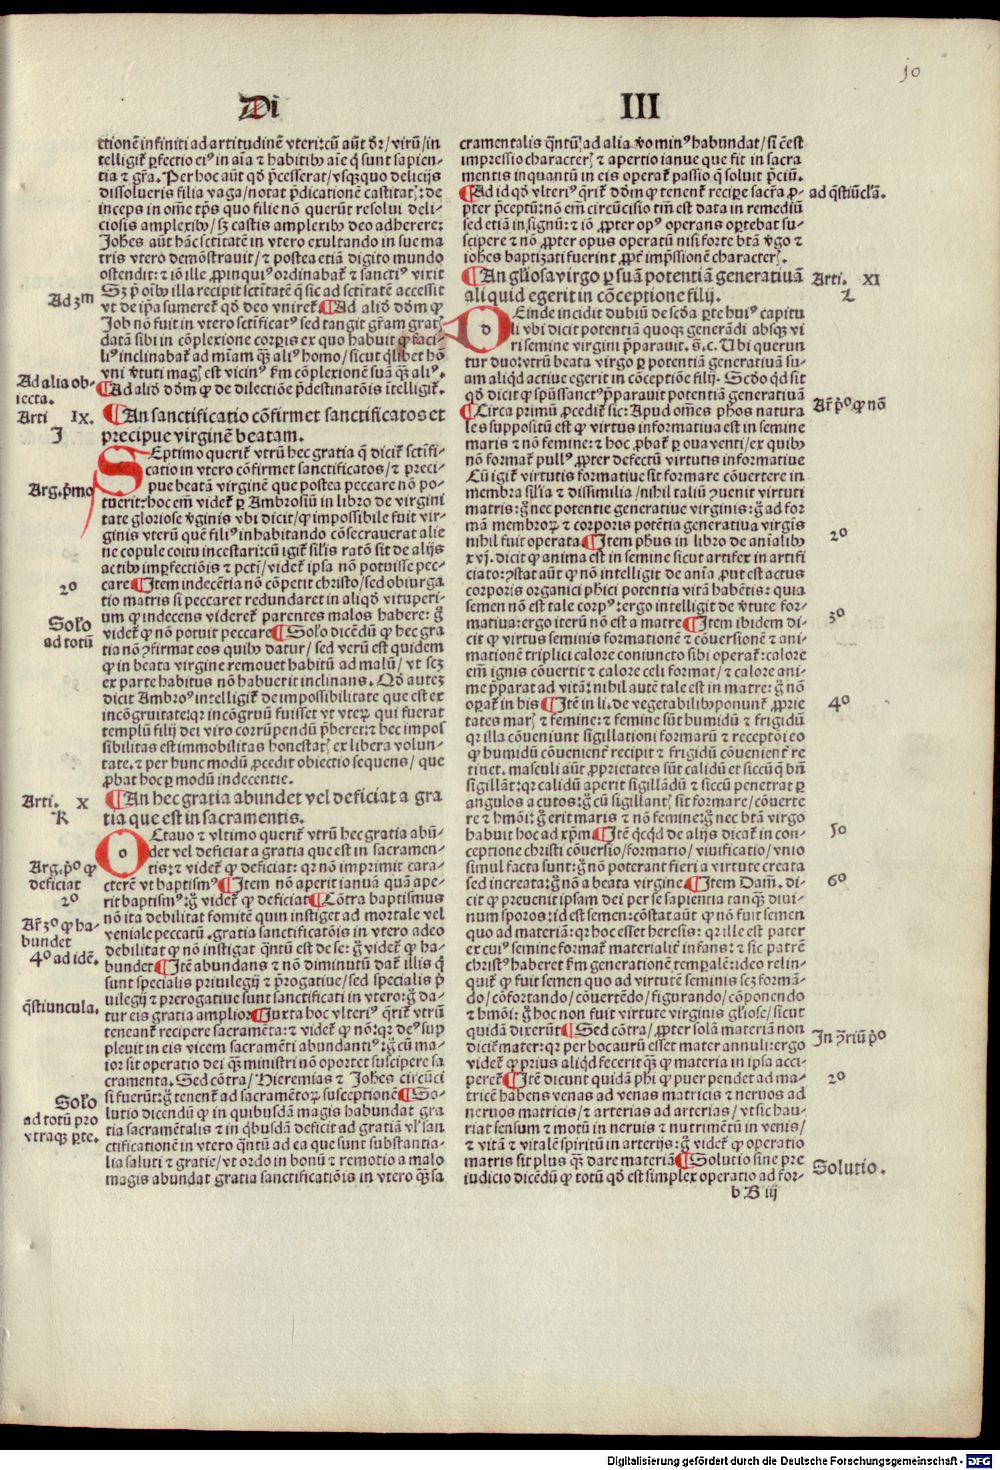 10
Di III
ctionē infiniti ad artitudinē vteri: cū aūt dr̄/ virū/ in
telligit̄ ꝑfectio eiꝰ in aīa ⁊ habitibꝰ aīe q̄ sunt sapien-
tia ⁊ gr̄a. Per hoc aūt qd̄ p̄cesserat/ vsqꝫquo delicijs
dissolueris filia vaga/ notat p̄dicationē castitatꝭ: de
inceps in om̄e tp̄s quo filie nō querūt resolui deli-
ciosis amplexibꝰ/ sꝫ castis amplexibꝰ deo adherere:
Joh̄es aūt hāc sctitatē in vtero exultando in sue ma
tris vtero demōstrauit/ ⁊ postea etiā digito mundo
ostendit: ⁊ iō ille ꝓpinquiꝰ ordinabat̄ ⁊ sanctiꝰ vixit
Sꝫ p̄ oībꝰ illa recipit sctitatē q̄ sic ad sctitatē accessit
Ad 3m vt de ip̄a sumeret̄ qd̄ deo vniret̄. ¶Ad aliō dōm ꝙ
Job nō fuit in vtero sctificatꝰ sed tangit gr̄am gratꝭ
datā sibi in cōplexione corꝑis ex quo habuit ꝙ faci-
liꝰ inclinabat̄ ad mīam qꝫ aliꝰ homo/ sicut qlibet hō
vni v̄tuti magꝭ est vicinꝰ ẜm cōplexionē suā qꝫ aliꝰ.
Ad alia ob-
iecta. ¶Ad aliō dōm ꝙ de dilectiōe p̄destinatōis ītelligit̄.
Arti IX.
J ¶An sanctificatio cōfirmet sanctificatos et
precipue virginē beatam.
SEptimo querit̄ vtrū hec gratia q̄ dicit̄ sctifi-
catio in vtero cōfirmet sanctificatos/ ⁊ preci-
pue beatā virginē que postea peccare nō po-
Arg. p̄mo tuerit: hoc em̄ videt̄ ꝑ Ambrosiū in libro de virgini
tate gloriose v̄ginis vbi dicit/ ꝙ impossibile fuit vir-
ginis vterū quē filiꝰ inhabitando cōsecrauerat alie
ne copule coitu incestari: cū igit̄ sil̄is ratō sit de alijs
actibꝰ imꝑfectiōis ⁊ pctī/ videt̄ ipsa nō potuisse pec-
2o care ¶Item indecētia nō cōpetit christo/ sed obiurga
tio matris si peccaret redundaret in aliqd̄ vituperi-
um ꝙ indecens videret̄ parentes malos habere: g̊
Solō
ad totū videt̄ ꝙ nō potuit peccare ¶Solō dicēdū ꝙ hec gra
tia nō ꝯfirmat eos quibꝰ datur/ sed verū est quidem
ꝙ in beata virgine remouet habitū ad malū/ vt scꝫ
ex parte habitus nō habuerit inclinans. Qd̄ autez
dicit Ambroꝰ intelligit̄ de impossibilitate que est ex
incōgruitate: qr incōgruū fuisset vt vteꝝ qui fuerat
templū filij dei viro corrūpendū p̄beret: ⁊ hec impos
sibilitas est immobilitas honestatꝭ ex libera volun-
tate. ⁊ per hunc modū ꝓcedit obiectio sequens/ que
ꝓbat hoc ꝑ modū indecentie.
Arti. X
K ¶An hec gratia abundet vel deficiat a gra
tia que est in sacramentis.
OCtauo ⁊ vltimo querit̄ vtrū hec gratia abū-
det vel deficiat a gratia que est in sacramen-
Arg. p̄o ꝙ
deficiat tis: ⁊ videt̄ ꝙ deficiat: qr nō imprimit cara-
cterē vt baptismꝰ ¶Item nō aperit ianuā quā ape-
2o rit baptismꝰ: g̊ videt̄ ꝙ deficiat ¶Cōtra baptismus
Ar̄ 3o ꝙ ha-
bundet nō ita debilitat fomitē quin instiget ad mortale vel
veniale peccatū. gratia sanctificatōis in vtero adeo
4o ad idē. debilitat ꝙ nō instigat qn̄tū est de se: g̊ videt̄ ꝙ ha-
bundet ¶Itē abundans ⁊ nō diminutū dat̄ illis q̄
sunt specialis priuilegij ⁊ p̄rogatiue/ sed specialis p̄
uilegij ⁊ prerogatiue sunt sanctificati in vtero: g̊ da-
q̄stiuncula. tur eis gratia amplior ¶Juxta hoc vlteriꝰ qrit̄ vtrū
teneant̄ recipere sacramēta: ⁊ videt̄ ꝙ nō: qr deꝰ sup
pleuit in eis vicem sacramēti abundantiꝰ: g̊ cū ma-
ior sit operatio dei qꝫ ministri nō oportet suscipere sa
cramenta. Sed cōtra/ Hieremias ⁊ Joh̄es circūci
Solō
ad totū pro
vtraqꝫ ꝑte. si fuerūt: g̊ tenent̄ ad sacramētoꝝ susceptionē ¶So-
lutio dicendū ꝙ in quibusdā magis habundat gra
tia sacramētalis ⁊ in qbusdā deficit ad gratiā vl̄ san
ctificationē in vtero qn̄tū ad ea que sunt substantia-
lia saluti ⁊ gratie/ vt ordo in bonū ⁊ remotio a malo
magis abundat gratia sanctificatiōis in vtero qꝫ sa
cramentalis qn̄tuꝫ ad alia v̄o minꝰ habundat/ si cēst
impressio characterꝭ ⁊ apertio ianue que fit in sacra
mentis inquantū in eis operat̄ passio q̄ soluit p̄ciū.
¶Ad id qd̄ vlteriꝰ qrit̄ dōm ꝙ tenent̄ recipe sacr̄a ꝓ- ad q̄stiūclā.
pter p̄ceptū: nō em̄ circūcisio tm̄ est data in remediū
sed etiā in signū: ⁊ iō ꝓpter opꝰ operans oꝑtebat su-
scipere ⁊ nō ꝓpter opus operatū nisi forte btā v̄go ⁊
ioh̄es baptizati fuerint ꝓpt̄ imp̄ssionē characterꝭ.
¶An gl̄iosa virgo ꝑ suā potentiā generatiuā Arti. XI
L
ali quid egerit in cōceptione filij.
DEinde incidit dubiū de scd̄a ꝑte huiꝰ capitu
li vbi dicit potentiā quoqꝫ generādi absqꝫ vi
ri semine virgini p̄parauit. ⁊.c. Ubi querun
tur duo: vtrū beata virgo ꝑ potentiā generatiuā su-
am aliqd actiue egerit in cōceptiōe filij. Scd̄o qd sit
qd̄ dicit ꝙ sp̄ussanctꝰ p̄parauit potentiā generatiuā
¶Circa primū ꝓcedit̄ sic: Apud om̄es ph̄os natura Ar̄ p̄o ꝙ nō
les suppositū est ꝙ virtus informatiua est in semine
maris ⁊ nō femine: ⁊ hoc ꝓbat̄ ꝑ oua venti/ ex quibꝰ
nō format̄ pullꝰ ꝓpter defectū virtutis informatiue
Cū igit̄ virtutis formatiue sit formare cōuertere in
membra sil̄ia ⁊ dissimilia/ nihil taliū ꝯuenit virtuti
matris: g̊ nec potentie generatiue virginis: g̊ ad for
mā membroꝝ ⁊ corporis potētia generatiua virgīs
nihil fuit operata ¶Item ph̄us in libro de aīalibꝰ 2o
xvj. dicit ꝙ anima est in semine sicut artifex in artifi
ciato: ꝯstat aūt ꝙ nō intelligit de anīa ꝓut est actus
corporis organici phici potentia vitā habētis: quia
semen nō est tale corpꝰ: ergo intelligit de v̄tute for-
matiua: ergo iterū nō est a matre ¶Item ibidem di- 3o
cit ꝙ virtus seminis formationē ⁊ cōuersionē ⁊ ani-
mationē triplici calore coniuncto sibi operat̄: calore
em̄ ignis cōuertit ⁊ calore celi format/ ⁊ calore ani-
me p̄parat ad vitā: nihil autē tale est in matre: g̊ nō
oꝑat̄ in his ¶Itē in li. de vegetabilibꝰ ponunt̄ ꝓprie 4o
tates marꝭ ⁊ femine: ⁊ femine sūt humidū ⁊ frigidū
qr illa cōueniunt sigillationi formarū ⁊ receptōi eo
ꝙ humidū cōuenient̄ recipit ⁊ frigidū cōuenient̄ re
tinet. masculi aūt ꝓprietates sūt calidū et siccū q̄ bn̄
sigillāt: qr calidū aperit sigillādū ⁊ siccū penetrat ꝑ
angulos acutos: g̊ cū sigillantꝭ sit formare/ cōuerte
re ⁊ hmōi: g̊ erit maris ⁊ nō femine: g̊ nec btā virgo
habuit hoc ad xp̄m ¶Itē qcqd de alijs dicat̄ in con- 5o
ceptione christi cōuersio/ formatio/ viuificatio/ vnio
simul facta sunt: g̊ nō poterant fieri a virtute creata
sed increata: g̊ nō a beata virgine ¶Item Dam. di- 6o
cit ꝙ preuenit ipsam dei per se sapientia tanqꝫ diui-
num sporos: id est semen: cōstat aūt ꝙ nō fuit semen
quo ad materiā: qr hoc esset heresis: qr ille est pater
ex cuiꝰ semine format̄ materialit̄ infans: ⁊ sic patrē
christꝰ haberet ẜm generationē temꝑalē: ideo relin-
quit̄ ꝙ fuit semen quo ad virtutē seminis scꝫ formā-
do/ cōfortando/ cōuertēdo/ figurando/ cōponendo
⁊ hmōi: g̊ hoc non fuit virtute virginis gl̄iose/ sicut
quidā dixerūt ¶Sed cōtra/ ꝓpter solā materiā non In ꝯ̄riū p̄o
dicit̄ mater: qr per hoc aurū esset mater annuli: ergo
videt̄ ꝙ prius aliqd fecerit qꝫ ꝙ materia in ipsa acci-
peret̄ ¶Itē dicunt quidā phi ꝙ puer pendet ad ma- 2o
tricē habens venas ad venas matricis ⁊ neruos ad
neruos matricis/ ⁊ arterias ad arterias/ vt sic hau-
riat sensum ⁊ motū in neruis ⁊ nutrimētū in venis/
⁊ vitā ⁊ vitalē spiritū in arterijs: g̊ videt̄ ꝙ operatio
matris sit plus qꝫ dare materiā ¶Solutio sine pre Solutio.
iudicio dicēdū ꝙ totū qd̄ est simplex operatio ad for-
b B iij
Digitalisierung gefördert durch die Deutsche Forschungsgemeinschaft - DFG